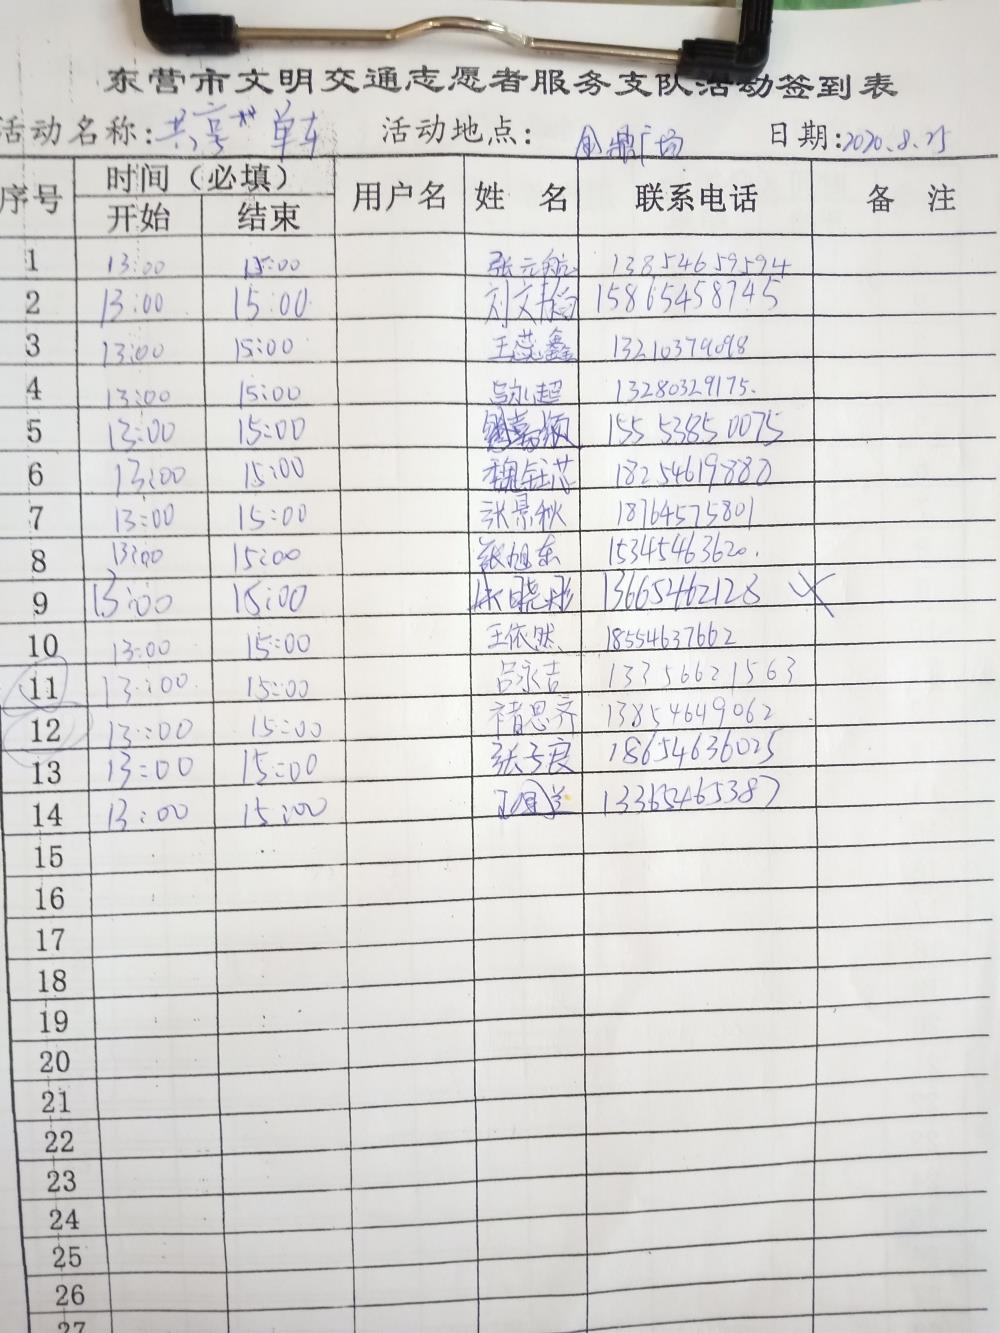 东营市文明交通志愿者服务支队活动签到表
活动名称:共享单车 活动地点: 金鼎广场 日期:2020.8.25
序号 时间（必填） 用户名 姓 名 联系电话 备 注
开始 结束
1 13:00 15:00 张元航 13854659594
2 13:00 15:00 刘文韬 15865458745
3 13:00 15:00 王蕊鑫 13210379098
4 13:00 15:00 吕永超 13280329175.
5 13:00 15:00 15553850075
6 13:00 15:00 魏钰芯 18254619880
7 13:00 15:00 张景秋 18764575801
8 13:00 15:00 张旭东 15345463620.
9 13:00 15:00 张晓彤 13665462128
10 13:00 15:00 王依然 18554637662
11 13:00 15:00 吕永吉 13356621563
12 13:00 15:00 褚思齐 13854649062
13 13:00 15:00 张子良 18654636025
14 13:00 15:00 13365465387
15
16
17
18
19
20
21
22
23
24
25
26
27